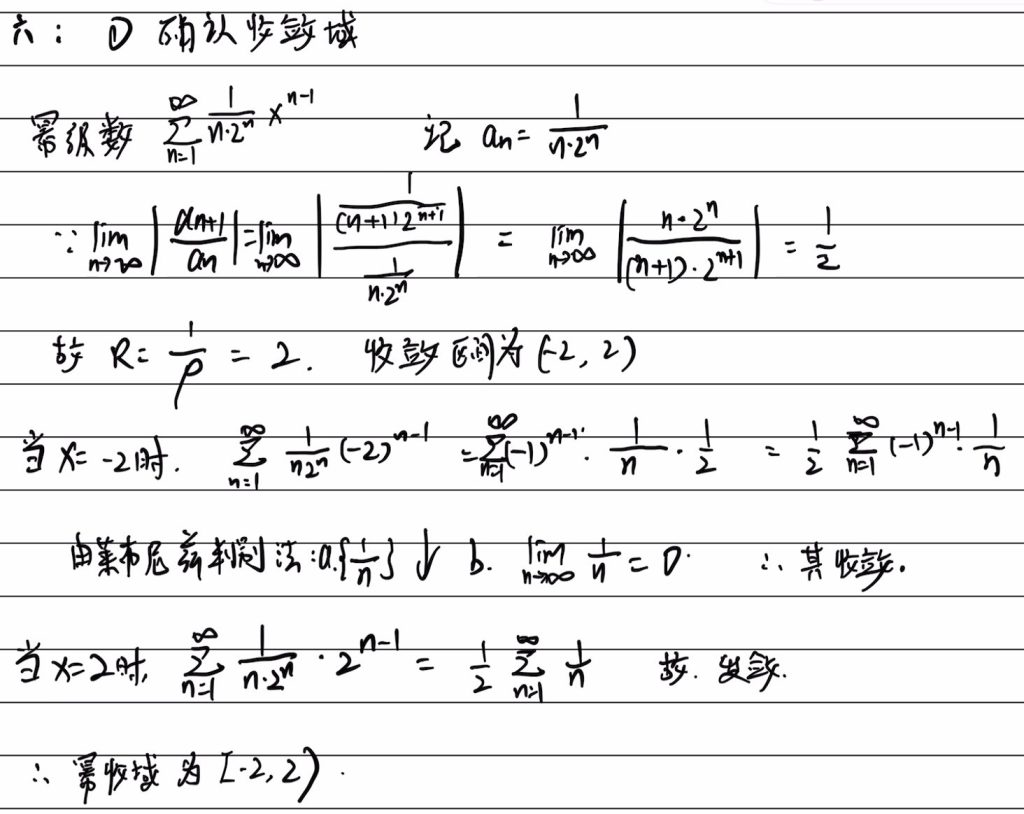 六：① 确认收敛域
幂级数 \sum_{n=1}^{\infty} \frac{1}{n·2^n} x^{n-1} 记 a_n = \frac{1}{n·2^n}
∵ \lim_{n→∞} |\frac{a_{n+1}}{a_n}| = \lim_{n→∞} |\frac{\frac{1}{(n+1)2^{n+1}}}{\frac{1}{n·2^n}}| = \lim_{n→∞} |\frac{n·2^n}{(n+1)·2^{n+1}}| = \frac{1}{2}
故 R = \frac{1}{ρ} = 2. 收敛区间为 (-2, 2)
当 x = -2时. \sum_{n=1}^{∞} \frac{1}{n2^n} (-2)^{n-1} = \sum_{n=1}^{∞} (-1)^{n-1} · \frac{1}{n} · \frac{1}{2} = \frac{1}{2} \sum_{n=1}^{∞} (-1)^{n-1} · \frac{1}{n}
由莱布尼兹判别法: a. {\frac{1}{n}} ↓ b. \lim_{n→∞} \frac{1}{n} = 0. ∴ 其收敛.
当 x=2时, \sum_{n=1}^{∞} \frac{1}{n·2^n} · 2^{n-1} = \frac{1}{2} \sum_{n=1}^{∞} \frac{1}{n} 故. 发散.
∴ 幂收域为 [-2, 2).